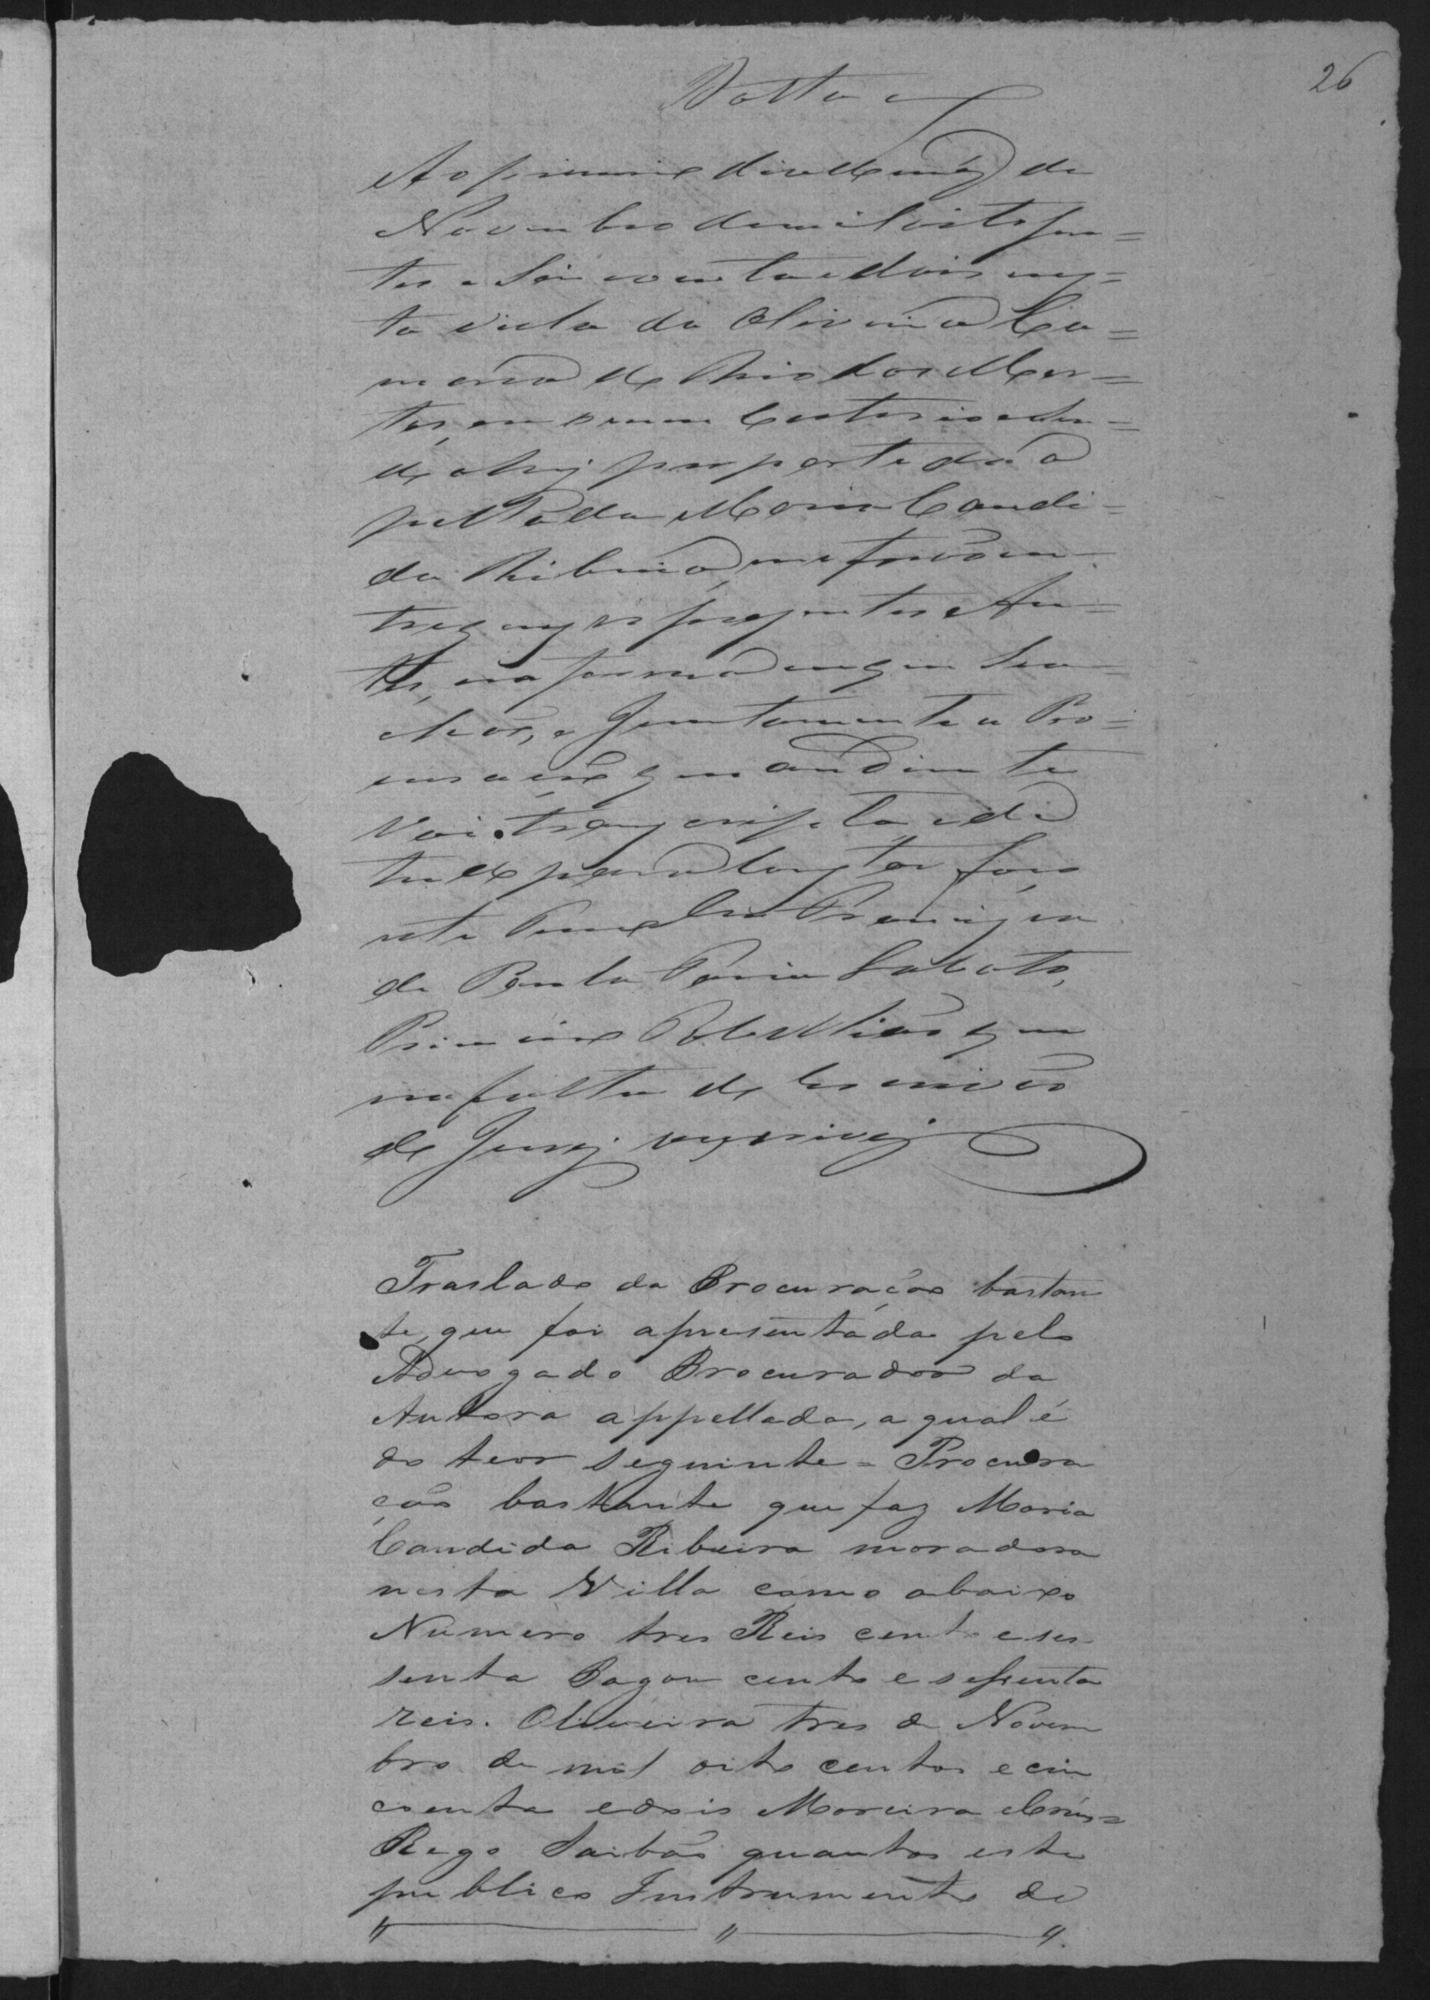 26
Volta
Ao primeiro dia do mez de
Novembro de mil oito sen=
tos e Sincoenta e dois nes=
ta Villa da Oliveira Co=
marca do Rio das Mor=
tes, em o meu Cartorio
ahi por parte da a
pellada Maria Candi=
da Ribeira, me forão en
tregues os prezentes Au=
tos, na forma em que Se a
chão, e Juntamente a Pro=
curação que aodiante
Vai transcripta, e de
tudo para constar faço
este Termo. Eu Francisco
de Paula Faria Lobato,
Primeiro Tabellião que
na falta de Escrivão
do Jury escrevi
Traslado da Procuração bastan
te, que foi apresentada pelo
Advogado Procurador da
Autora appellada, a qual é
do teor seguinte = Procura
ção bastante que faz Maria
Candida Ribeira moradora
nesta Villa como abaixo
Numero tres Reis cento e ses
senta Pagou cento e sessenta
reis. Oliveira tres de Novem
bro de mil oito centos e cin
coenta e dois Moreira
Rego Saibão quantos este
publico Instrumento de
" " "